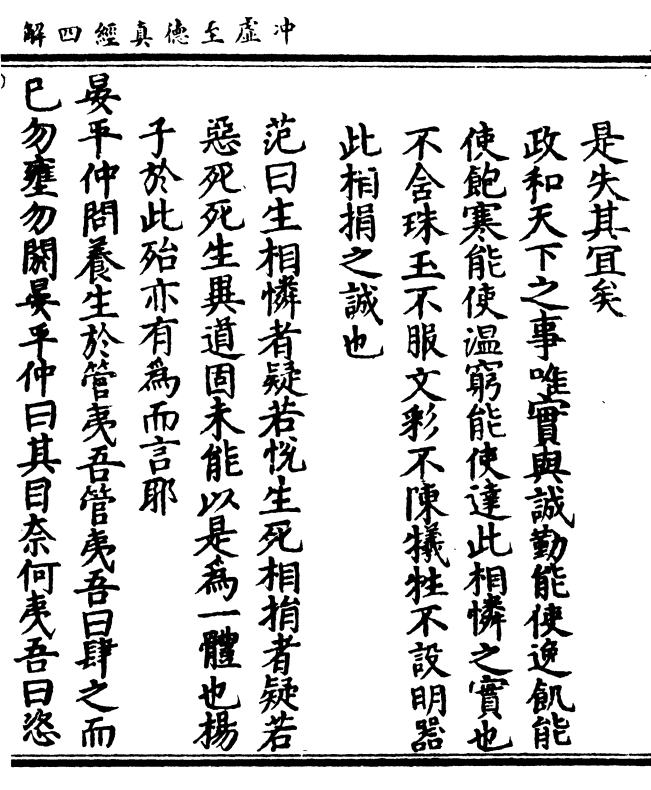 冲虛至德真經四解
是失其宜矣
政和天下之事唯實與誠勤能使逸飢能
使飽寒能使温窮能使達此相憐之實也
不含珠玉不服文彩不陳犧牲不設明器
此相捐之誠也
范曰生相憐者疑若悅生死相捐者疑若
惡死死生與道固未能以是為一體也揚
子於此殆亦有為而言耶
晏平仲問養生於管夷吾管夷吾曰肆之而
已勿壅勿閼晏平仲曰其目奈何夷吾曰恣